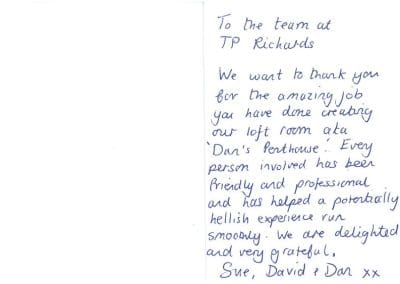 To the team at
TP Richards
We want to thank you
for the amazing job
you have done creating
our loft room aka
'Dan's Penthouse'. Every
person involved has been
friendly and professional
and has helped a potentially
hellish experience run
smoothly. We are delighted
and very grateful.
Sue, David & Dan xx